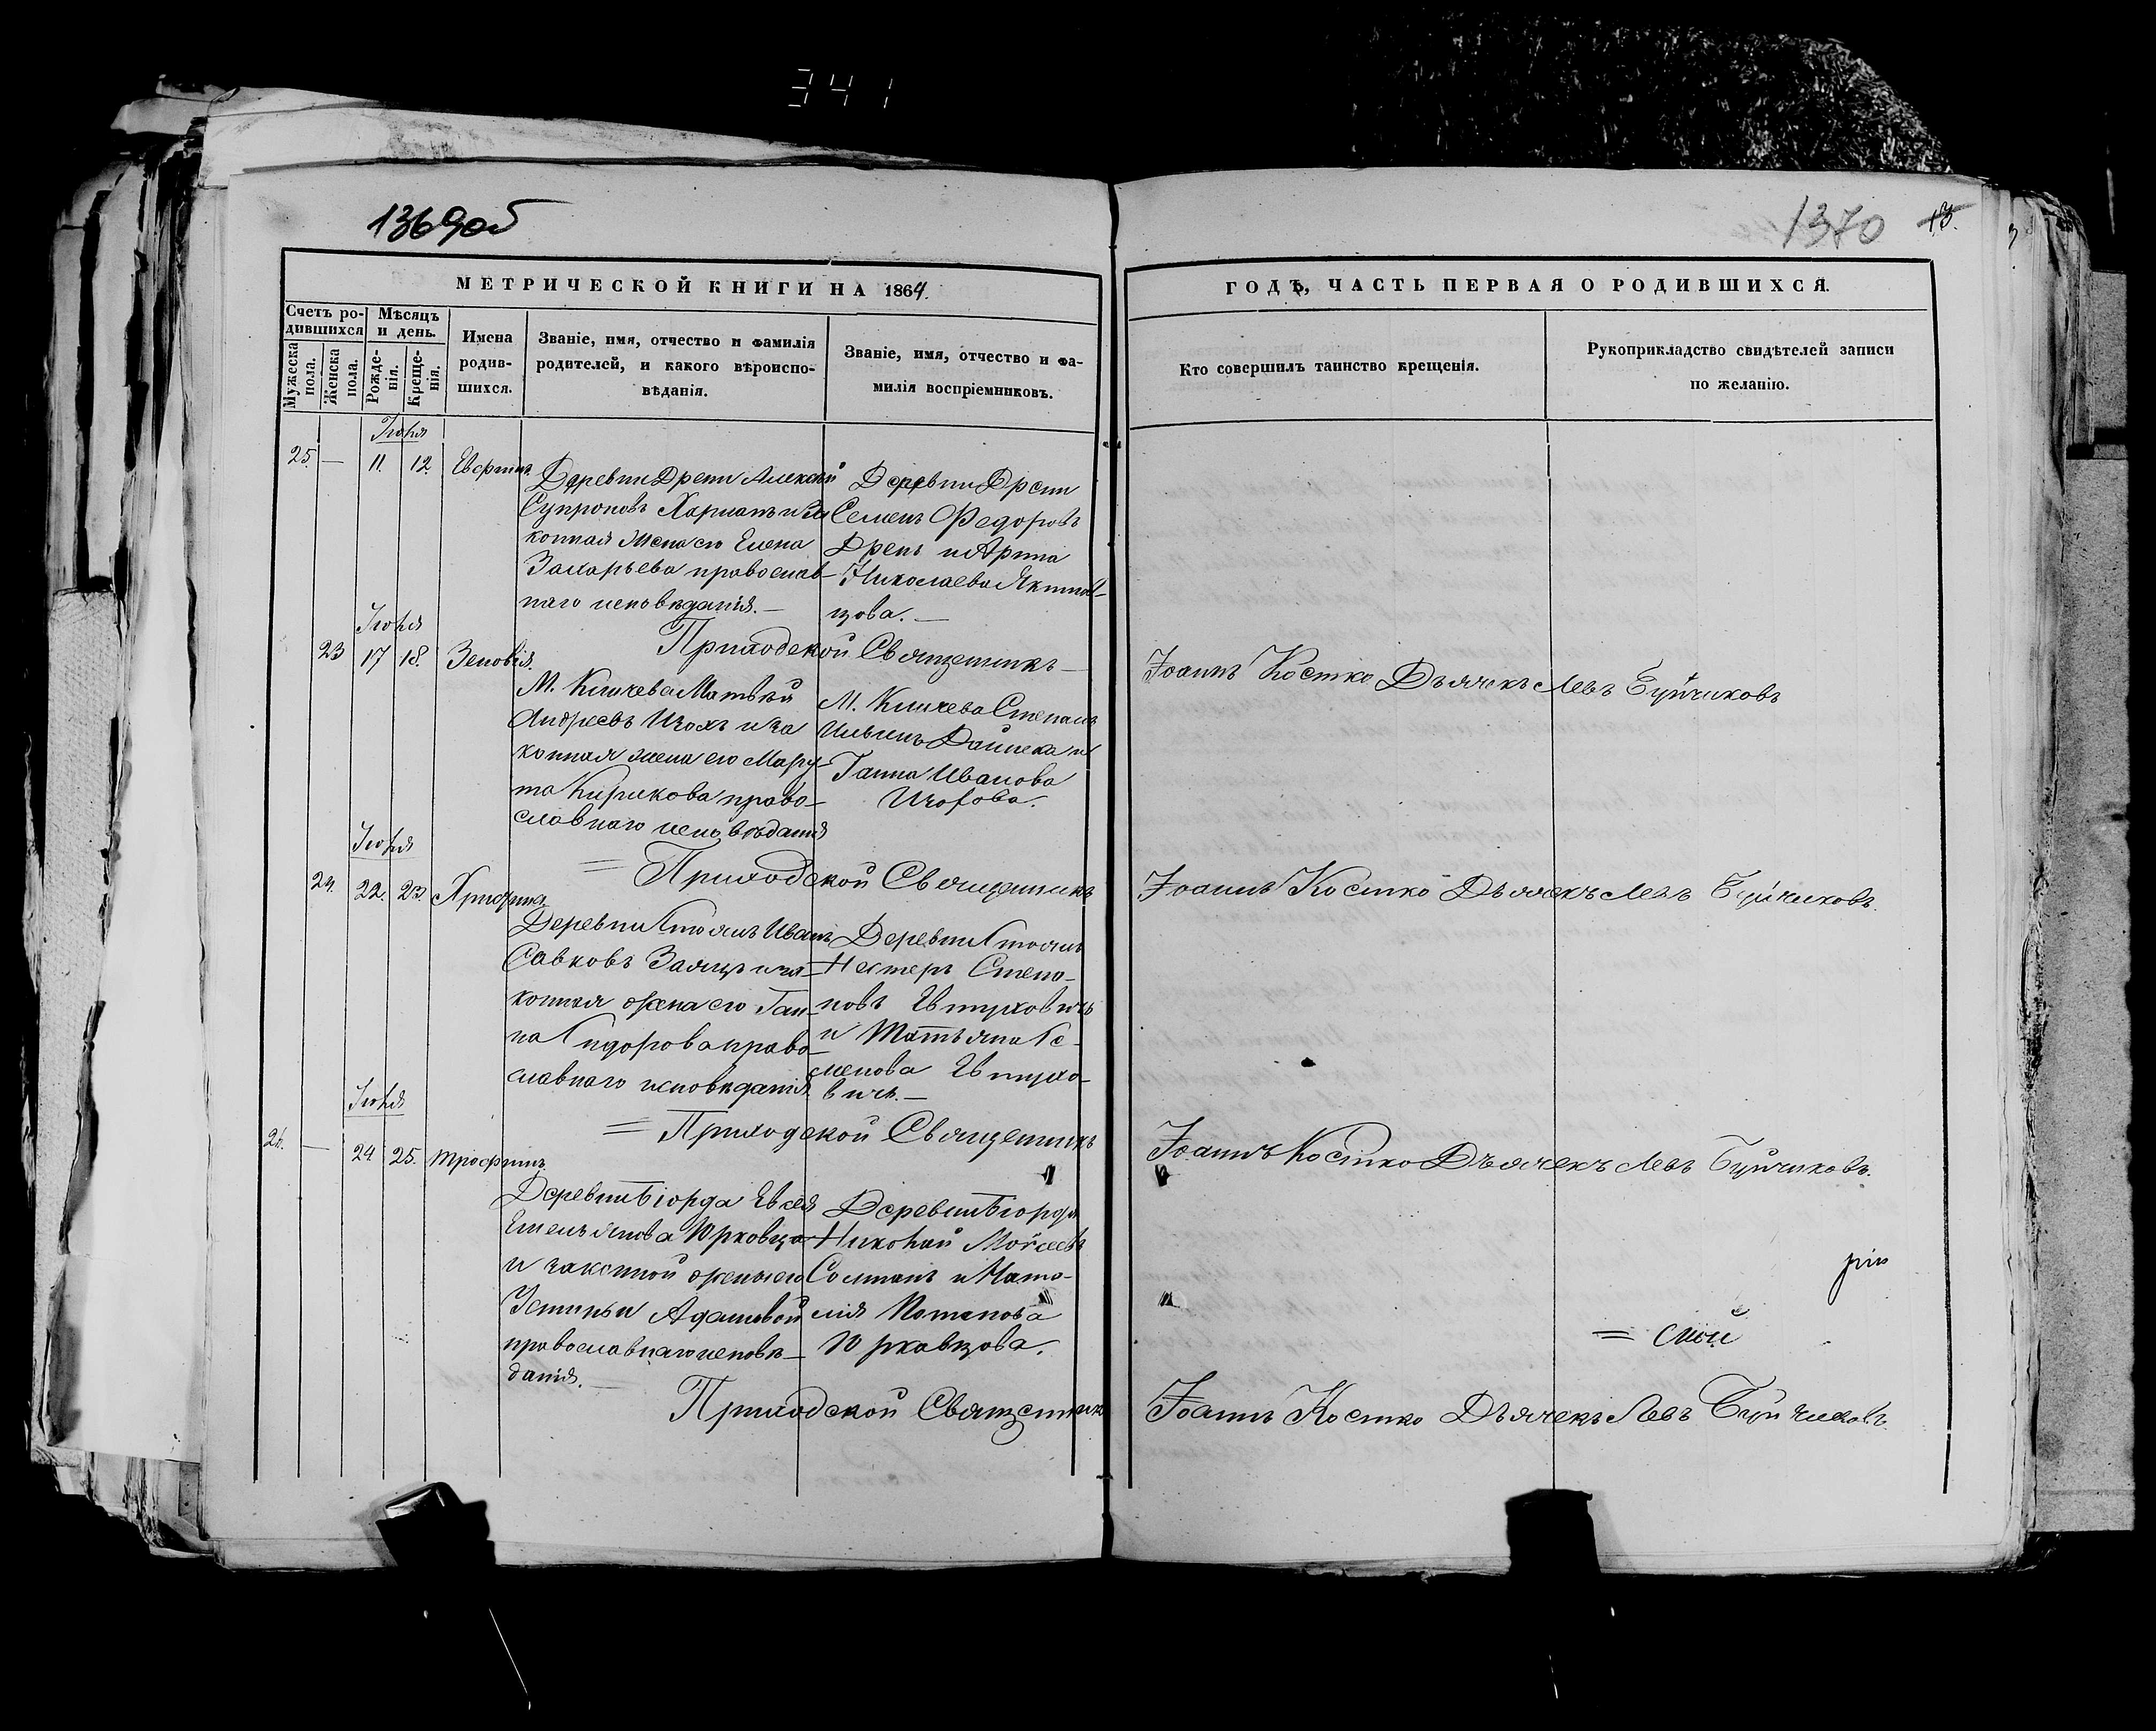 341
1369об
1370 13.
МЕТРИЧЕСКОЙ КНИГИ НА 1864.
Счетъ родившихся
Мужеска пола.
Женска пола.
Мѣсяцъ и день.
Рожденія.
Крещенія.
Имена родившихся.
Званіе, имя, отчество и фамилія
родителей, и какого вѣроиспо-
вѣданія.
Званіе, имя, отчество и фа-
милія воспріемниковъ.
ГОДЪ, ЧАСТЬ ПЕРВАЯ О РОДИВШИХСЯ.
Кто совершилъ таинство крещенія.
Рукоприкладство свидѣтелей записи
по желанію.
Іюня
25. — 11. 12.
Деревни Алексѣй
Супроновъ и за
конная жена его Елена
Захарьева православ-
наго исповѣданія. —
Деревни
Семенъ Федоровъ
и Арина
Николаева
цова. —
Приходской Священникъ —
Іоаннъ Костко Дьячекъ Левъ
Іюня
23 17 18. Зеновія.
М. Кличева Матвѣй
Андреевъ и за
конная жена его Мару-
та Кирикова право-
славнаго исповѣданія
М. Кличева Степанъ
Ильинъ и
Ганна Иванова
= Приходской Священникъ
Іоаннъ Костко Дьячекъ Левъ
Іюня
24. 22. 23. Христина
Деревни Иванъ
Савковъ Заяцъ и за-
конная жена его Ган-
на Сидорова право-
славнаго исповѣданія
Деревни
Нестеръ Степа-
новъ Евтуховичъ
и Татьяна Се-
менова Евтухо-
вичъ. —
= Приходской Священникъ
Іоаннъ Костко Дьячекъ Левъ
Іюня
26. — 24. 25. Трофимъ
Деревни Біорда Евсея
Емельянова Юрковца
и законной жены его
Устиньи Адамовой
православнаго исповѣ-
данія. —
Деревни Біорда
Николай Мойсеевъ
Солтанъ и Ната-
лія Потапова
Юрковцова.
Приходской Священникъ
Іоаннъ Костко Дьячекъ Левъ